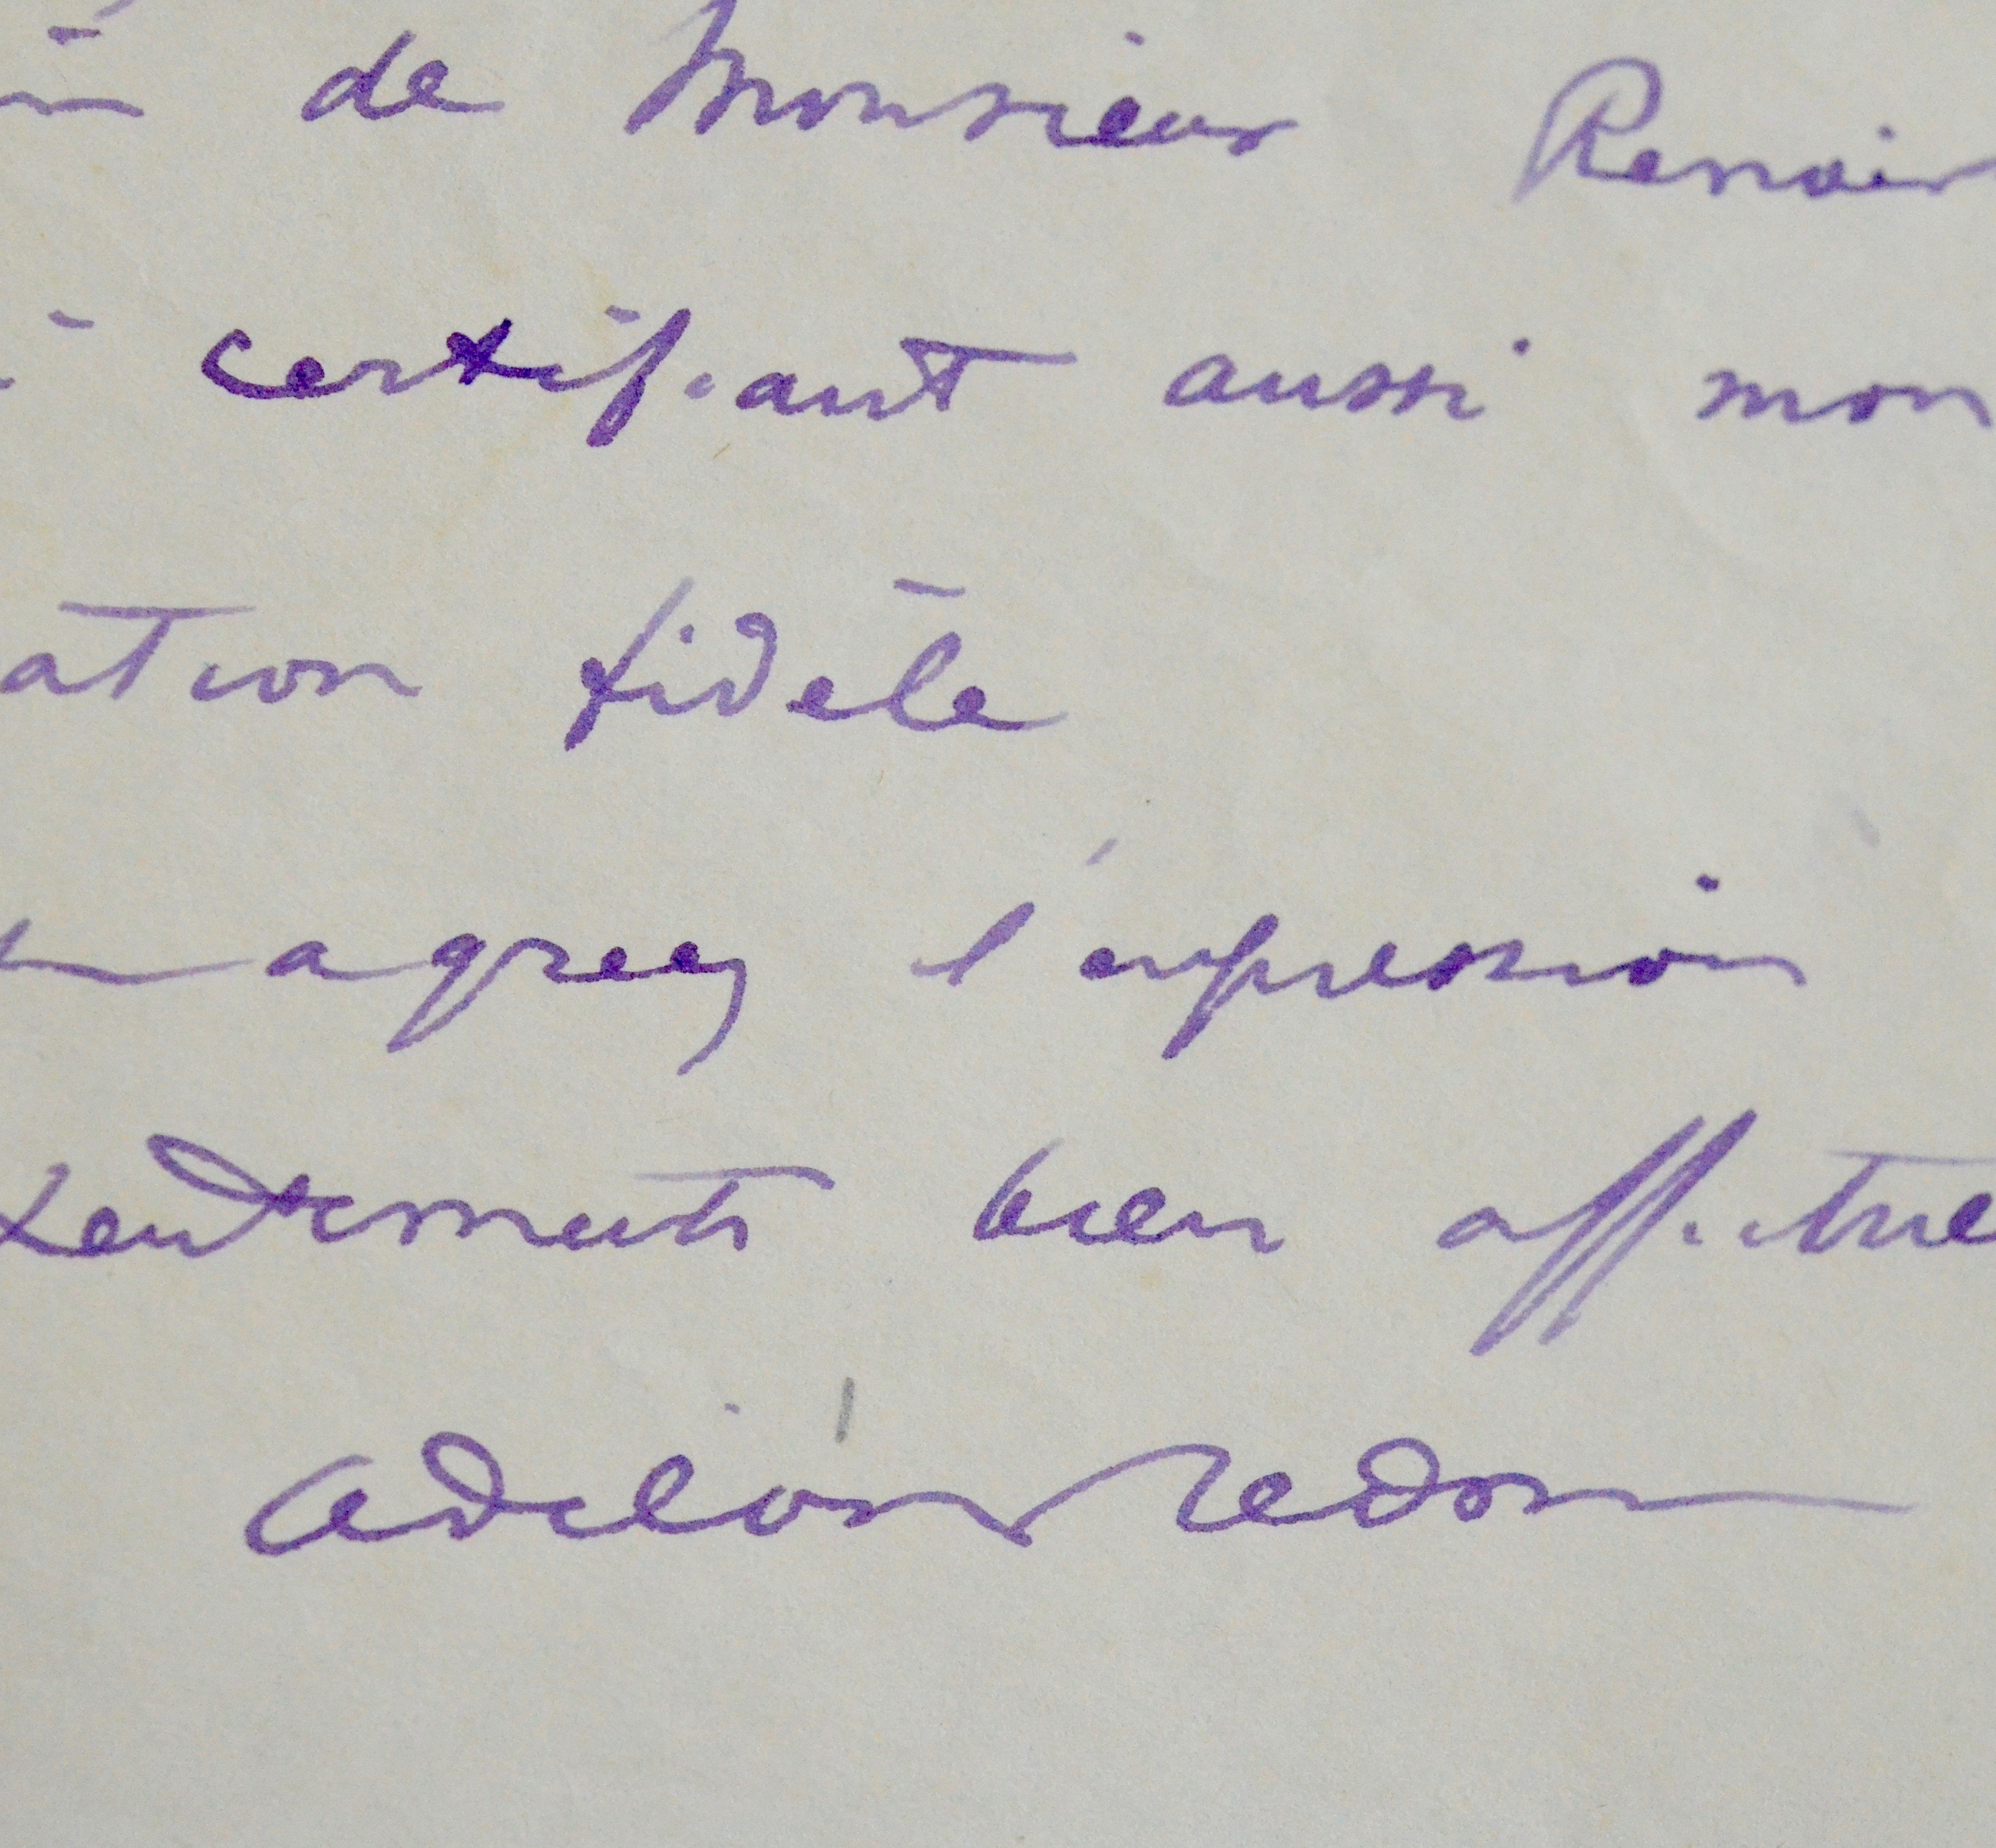 de Monsieur Renoir
certifiant aussi mon
ation fidèle
agreez l'expression
sentiments bien affectue
odilon redon